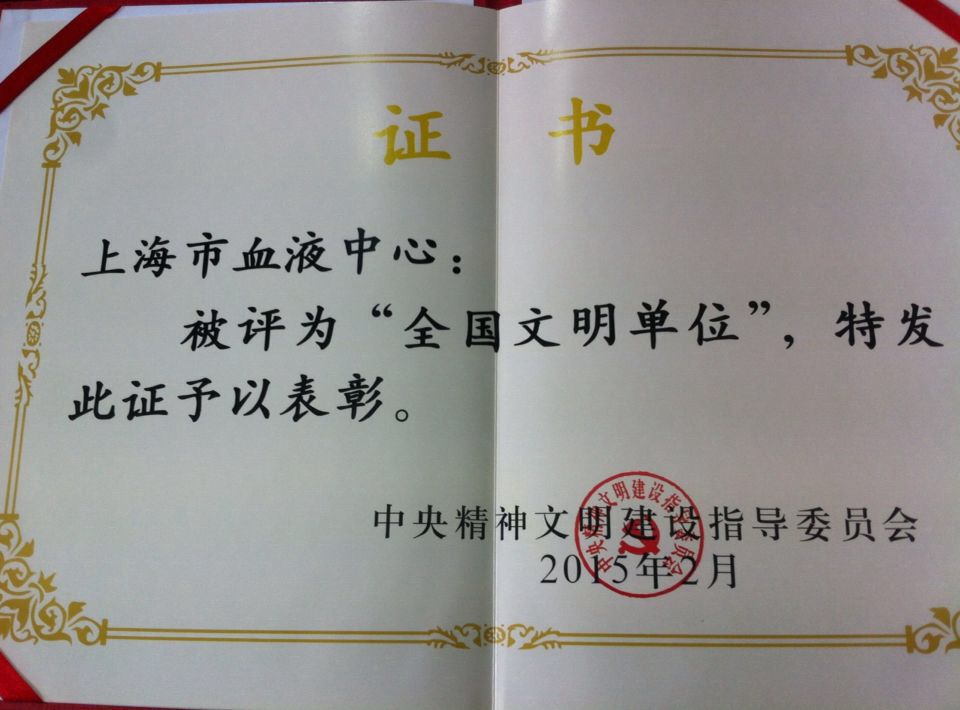 证 书
上海市血液中心：
被评为“全国文明单位”，特发
此证予以表彰。
中央精神文明建设指导委员会
2015年2月
中央精神文明建设指导委员会